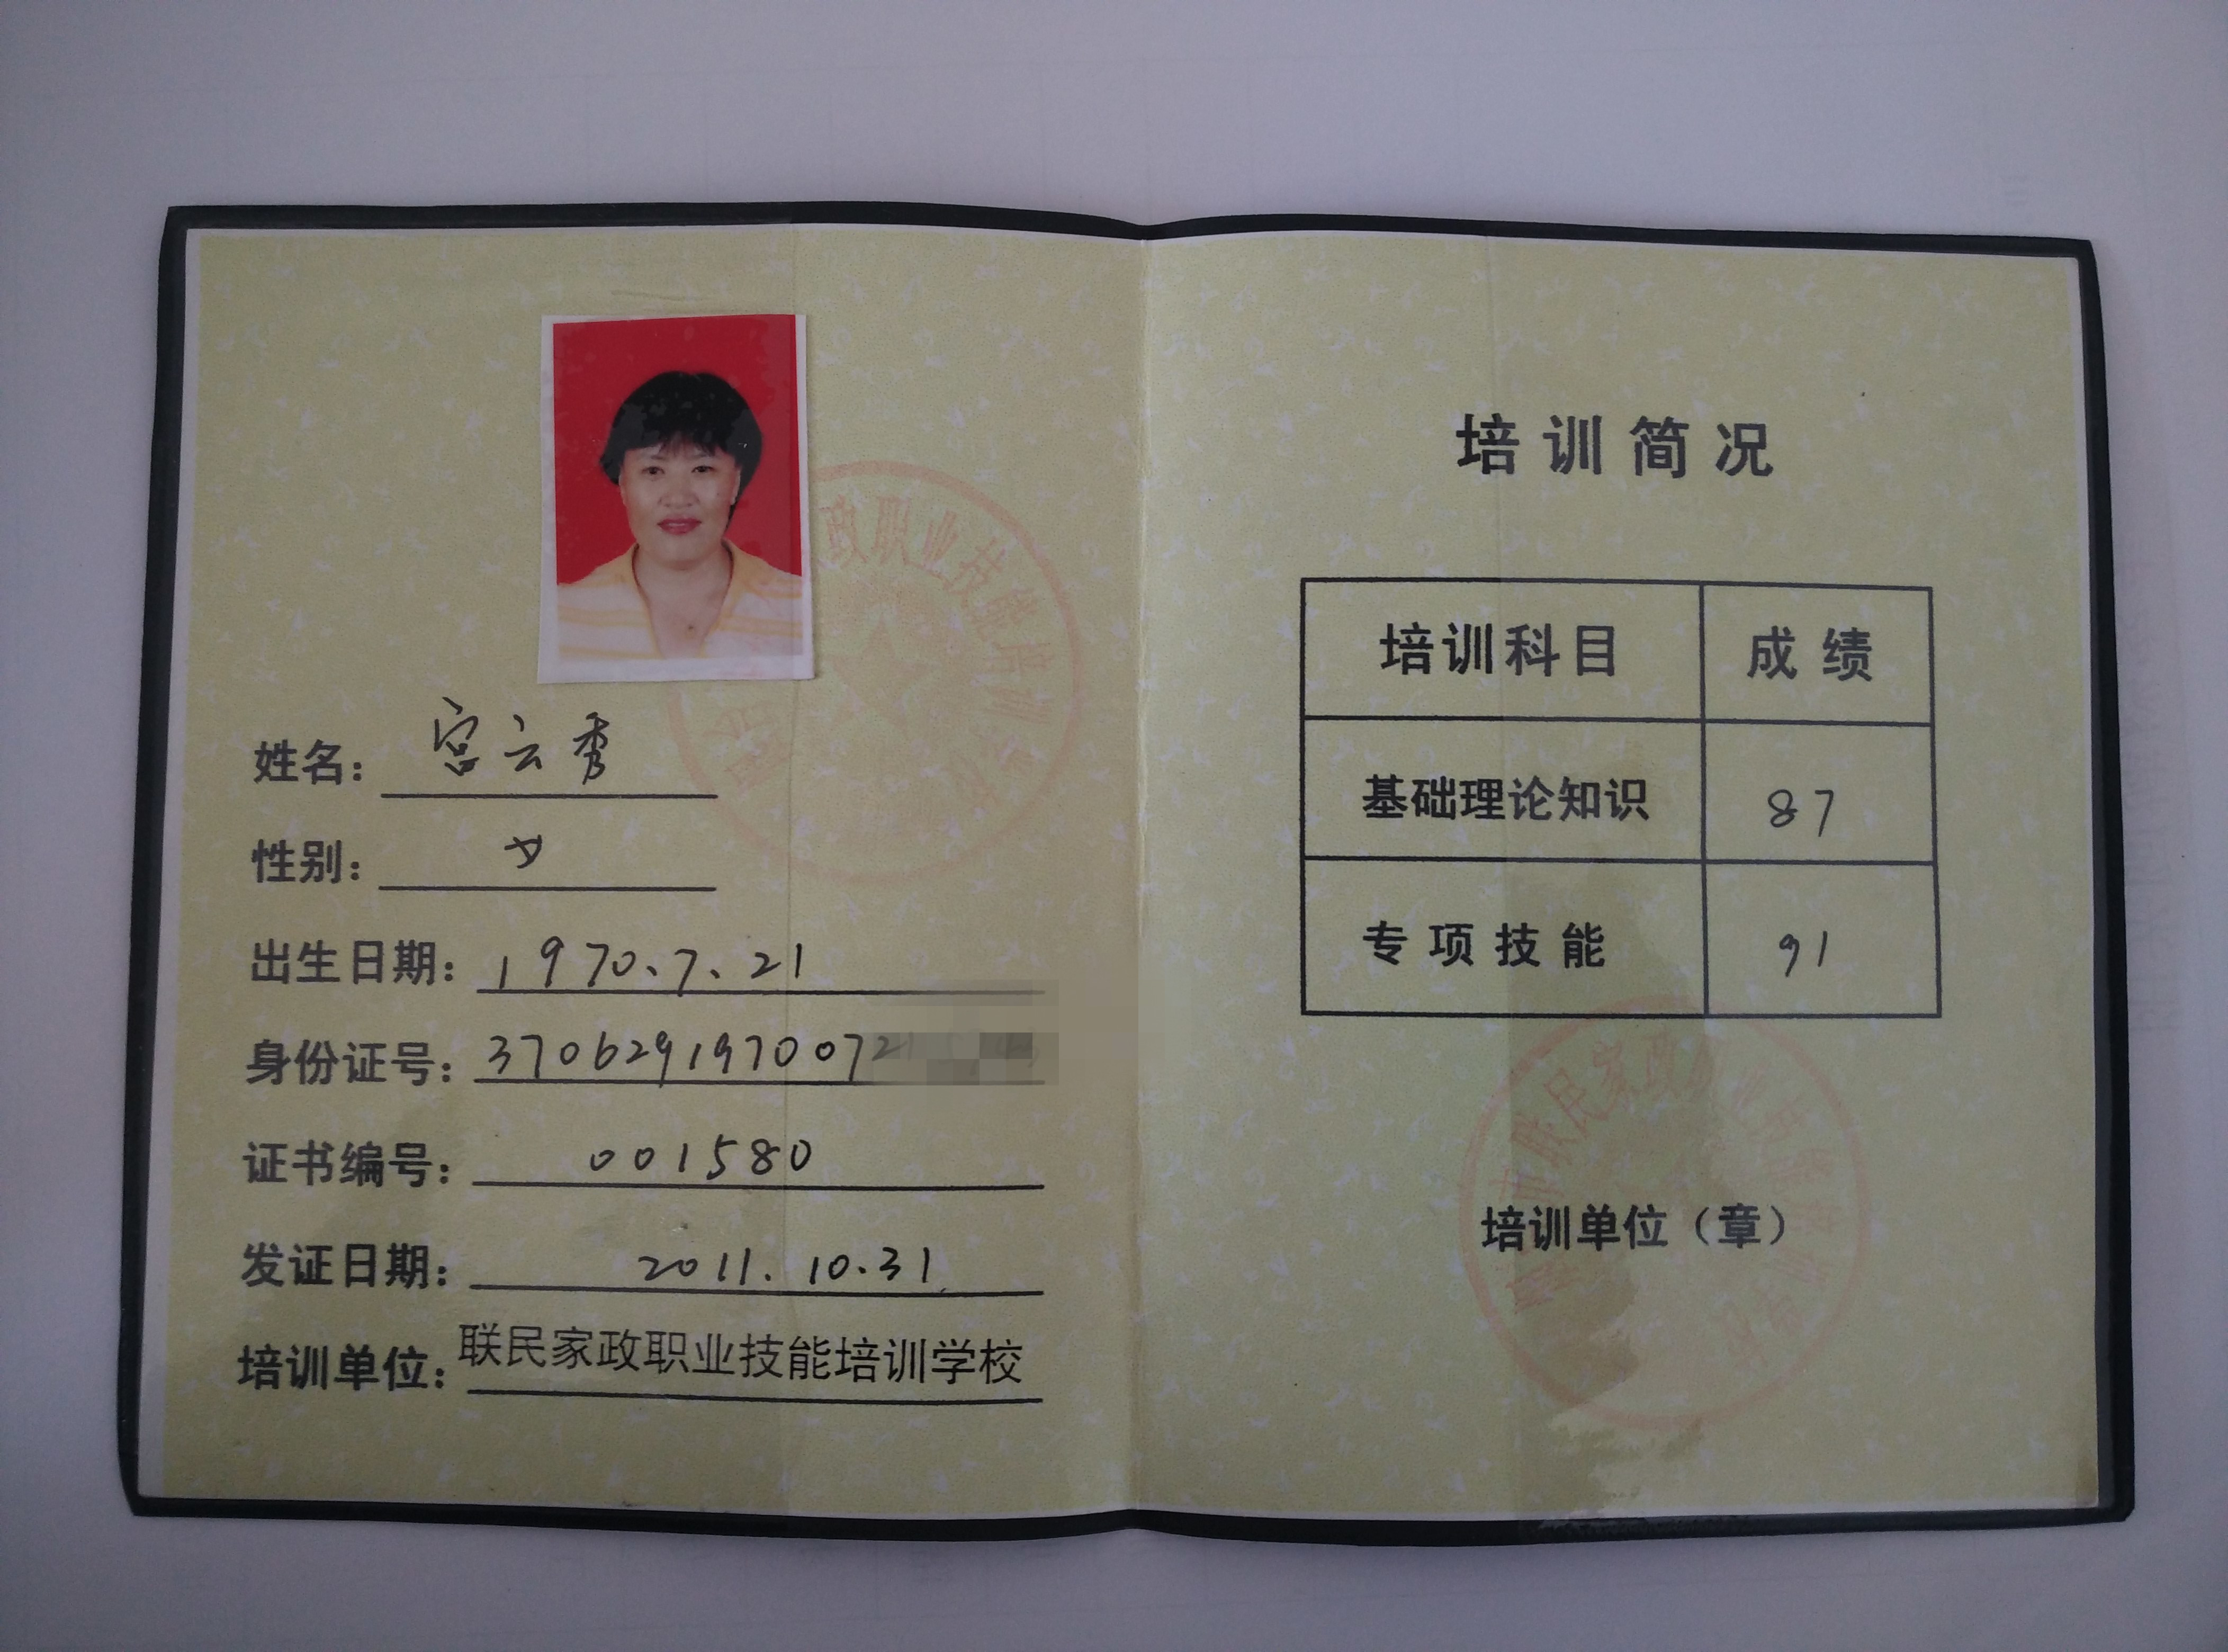 姓名：宫云秀
性别：女
出生日期：1970、7、21
身份证号：37062919700721
证书编号：001580
发证日期：2011.10.31
培训单位：联民家政职业技能培训学校
政职业技能培训
培训简况
培训科目 成绩
基础理论知识 87
专项技能 91
培训单位（章）
市联民家政职业技能培训学校